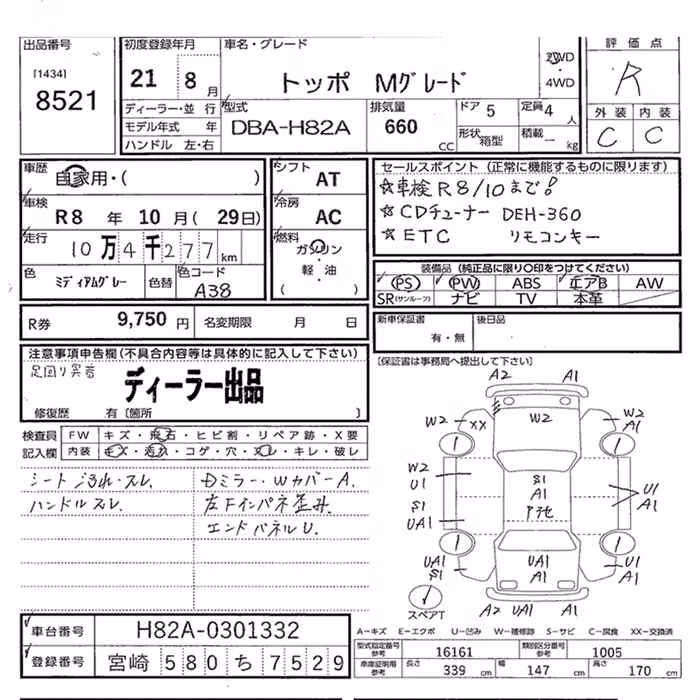 出品番号
[1434]
8521
初度登録年月
21 8月
車名・グレード
トッポ Mグレード
2WD
4WD
評価点
R
ディーラー・並行
モデル年式 年
ハンドル 左・右
型式
DBA-H82A
排気量
660 CC
ドア 5
形状 箱型
定員 4人
積載 ー kg
外装 内装
C C
車歴
自家用・( )
車検
R8年 10月(29日)
走行
10万4千277km
色
ミディアムグレー
色替
色コード
A38
シフト
AT
冷房
AC
燃料
ガソリン
軽・油
( )
セールスポイント(正常に機能するものに限ります)
☆車検R8/10まで!
☆CDチューナー DEH-360
☆ETC リモコンキー
装備品(純正品に限り○印をつけてください)
PS PW ABS エアB AW
SR(サンルーフ) ナビ TV 本革
R券 9,750円 名変期限 月 日
新車保証書
有・無
後日品
[保証書は事務局へ提出して下さい]
注意事項申告欄(不具合内容等は具体的に記入して下さい)
足回り異音
ディーラー出品
修復歴 有〔箇所 〕
検査員
記入欄
FW キズ・飛石・ヒビ割・リペア跡・X要
内装 キズ・汚れ・コゲ・穴・スレ・キレ・破レ
シートヨゴれ・スレ.
ハンドルスレ.
DミラーWカバーA.
左Fインパネ歪み.
エンドパネルU.
A2 A1
W2 XX W2 W2 A1
W2 U1
S1 A1
S1 UA1
U1 A1
UA1 S1
UA1 A1
U1 A1
スペアT
A2 UA1 A1
車台番号 H82A-0301332
登録番号 宮崎 580 ち 7529
A-キズ E-エクボ U-凹み W-補修跡 S-サビ C-腐食 XX-交換済
型式指定番号 参考 16161 類別区分番号 参考 1005
車庫証明用 参考 長さ 339 cm 幅 147 cm 高さ 170 cm